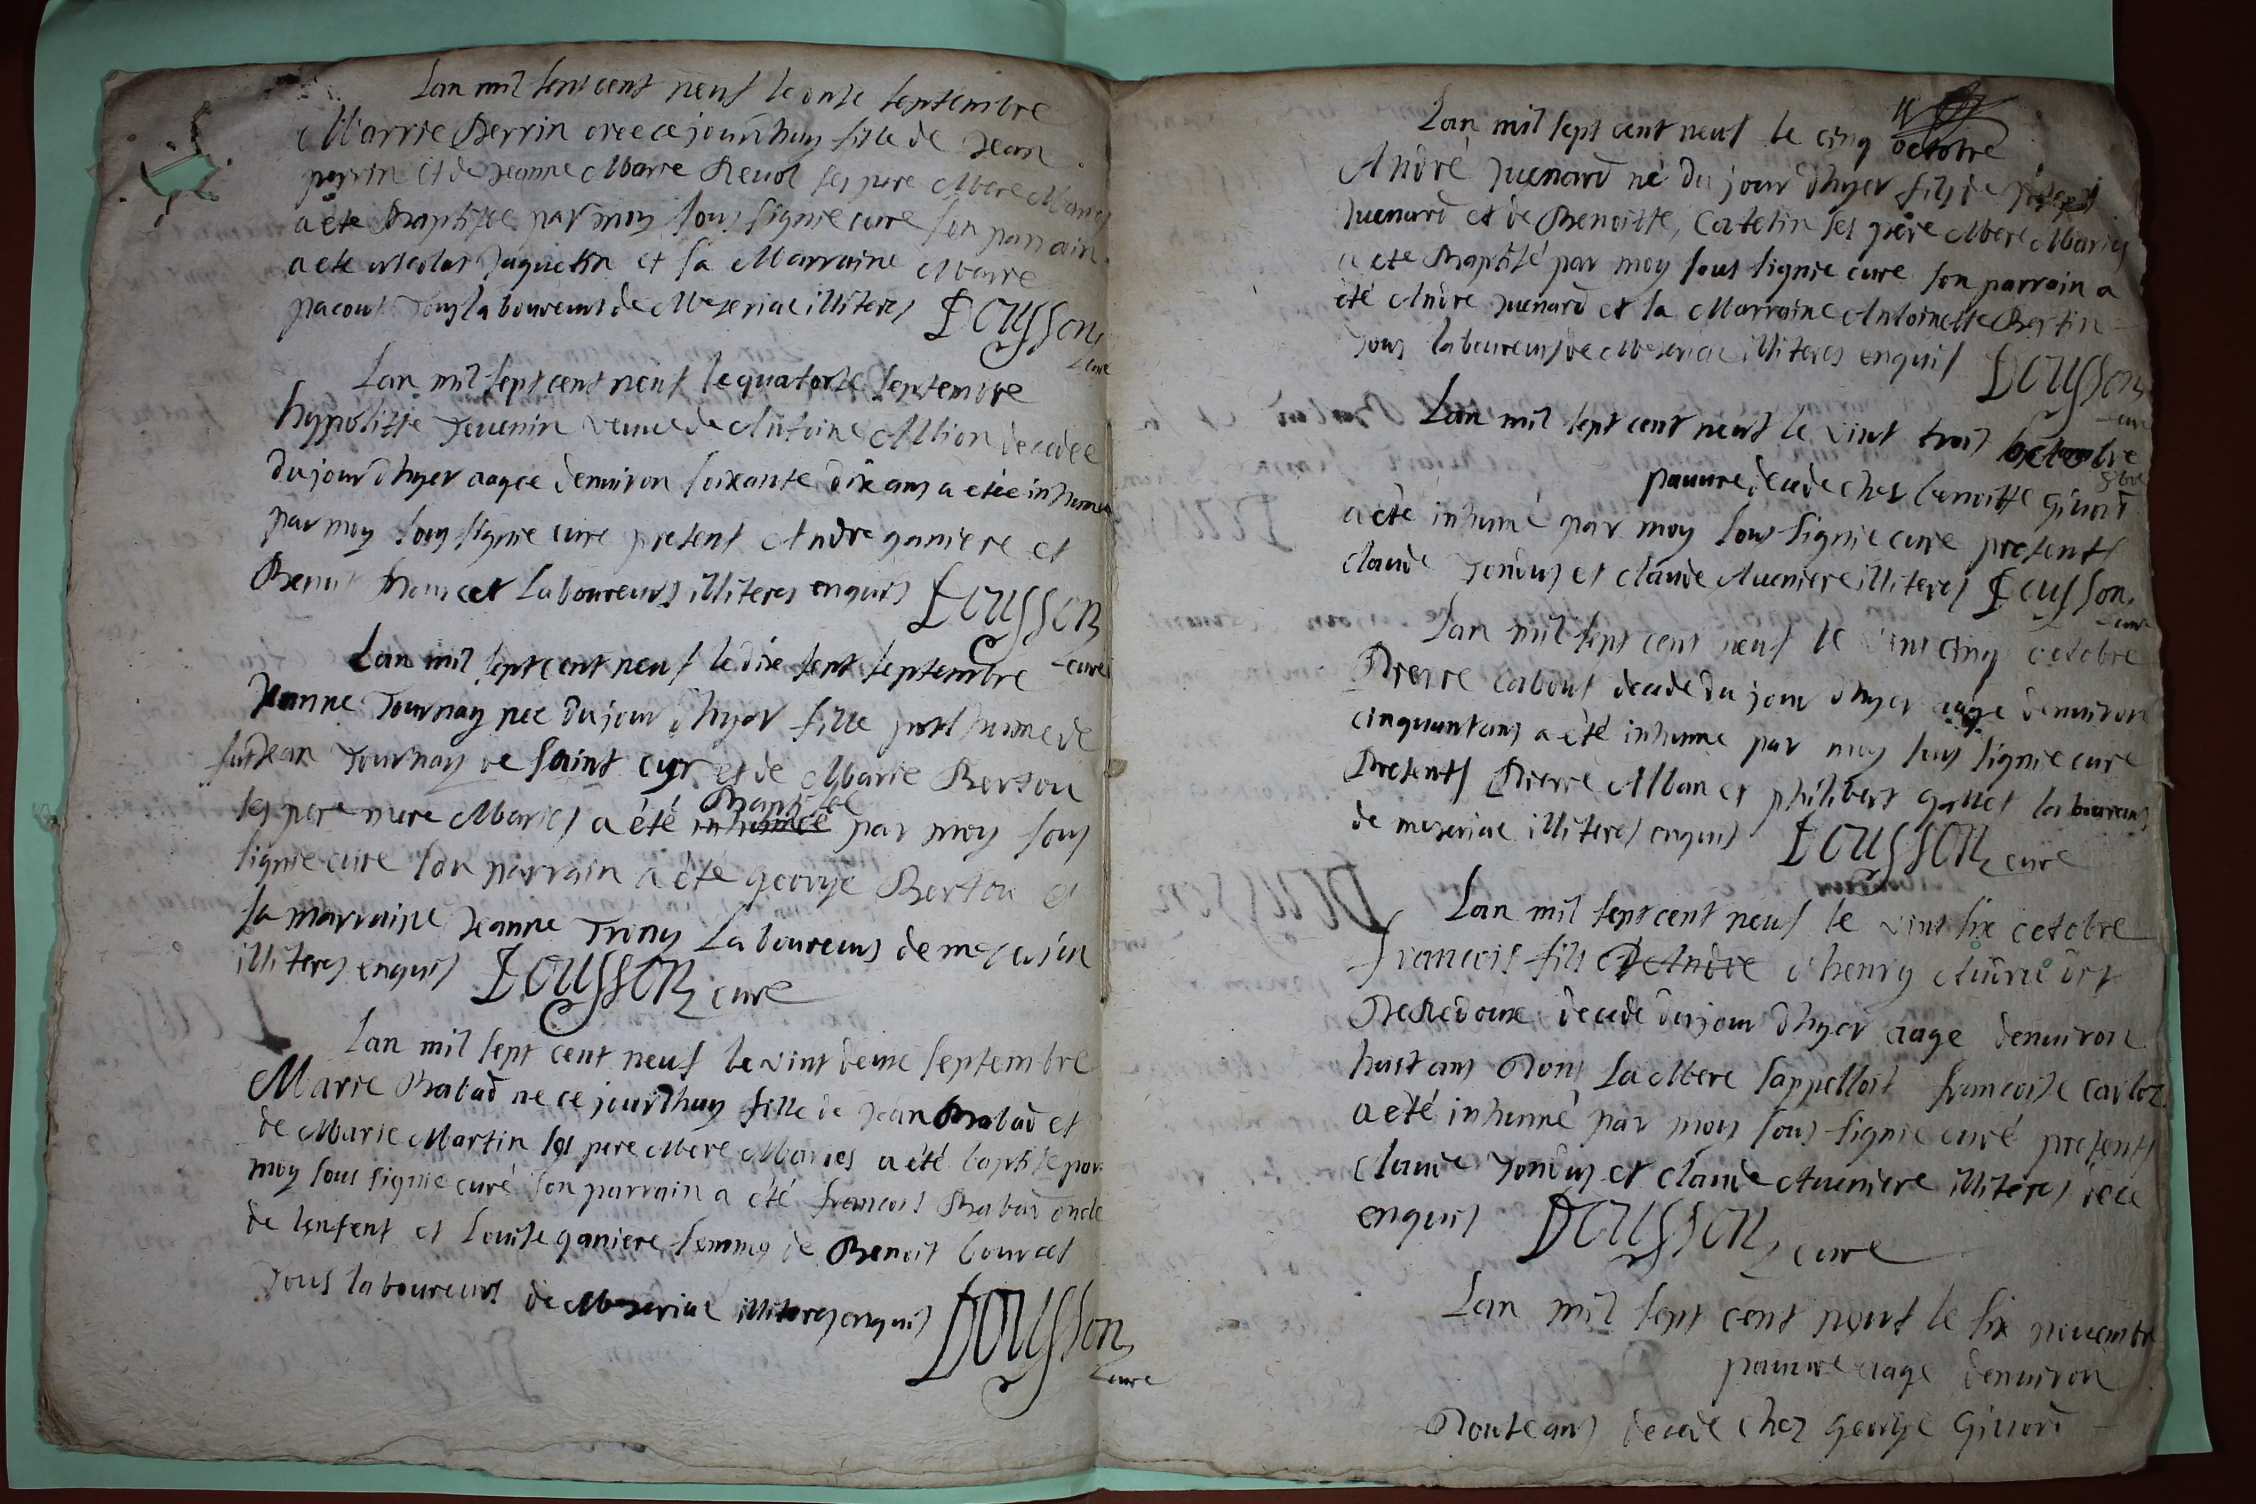 Lan mil sept cent neuf le onze septembre
Marrie Perrin nee ce jourdhuy fille de Jean
perrin et de Jeanne Marie Revol ses pere Mere Maries
a ete Baptisee par moy sous signie cure son parrain
a ete nicolas Juguetin et sa Marraine Marie
pacout Tous laboureurs de Mezeriac illiteres Dousson
cure
Lan mil sept cent neuf le quatorze septembre
hyppolitte Jevenin veuve de Antoine Allion decedee
du jour dhyer aagee denviron soixante dix ans a etee inhumee
par moy sous signie cure presens Andre ganiere et
Benoit Bourcet Laboureurs illiteres enquis Dousson
cure
Lan mil sept cent neuf le dix sept septembre
Jeanne Tournay nee du jour dhyer fille posthume de
fut Jean Tournay de saint cyr et de Marie Bertou
Baptisee
ses pere mere Maries a été inhumee par moy sous
signie cure son parrain a été george Bertou et
sa marraine Jeanne Trony Laboureurs de
illiteres enquis Dousson cure
Lan mil sept cent neuf le vint deux septembre
Marie Rabad ne ce jourdhuy fille de Jean Rabad et
de Marie Martin ses pere Mere Maries a été baptise par
moy sous signie curé son parrain a été francois Rabad oncle
de lenfent et Louise ganiere femme de Benoit bourcet
Tous laboureurs de Mezeriac illiteres enquis Dousson
cure
Lan mil sept cent neuf le cinq octobre
André Juenard né du jour dhyer fils de Joseph
Juenard et de Benoitte Catelin ses père Mere Maries
a ete Baptisé par moy sous signie cure son parrain a
été Andre Juenard et sa Marraine Antoinette Bertin
Tous laboureurs de Mezeriac illiteres enquis Dousson
cure
Lan mil sept cent neuf le vint trois octobre
8bre
pauvre decede chez benoitte givord
a été inhumé par moy sous signie cure presents
claude Tondus et claude Aveniere illiteres Dousson
cure
Lan mil sept cent neuf le vint cinq octobre
Pierre cabout decede du jour dhyer aage denviron
cinquantans a été inhume par moy sous signie cure
Presents Pierre Alban et philibert gallet laboureurs
de mezeriac illiteres enquis Dousson cure
Lan mil sept cent neuf le vint six octobre
francois fils De Andre dhenry
decede du jour dhyer aage denviron
huit ans Dont La Mere sappelloit francoise
a été inhumé par moy sous signie curé presents
claude Tondus et claude Aveniere illiteres
enquis Dousson cure
Lan mil sept cent neuf le six novembre
pauvre aage denviron
ans decede chez george Givord